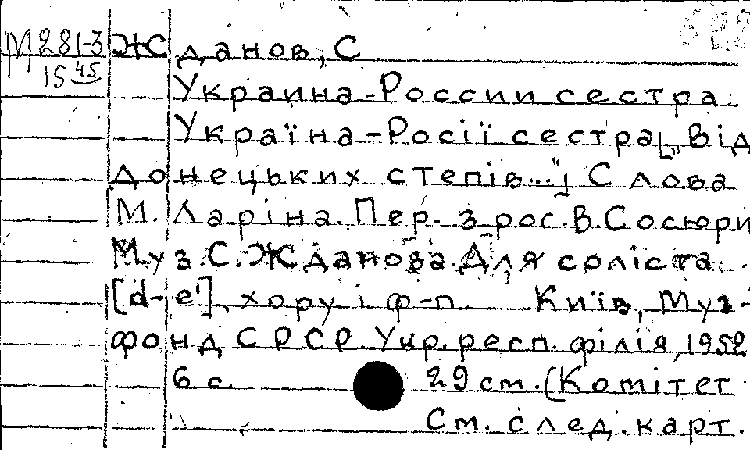 М281-3 Жданов, С
15 45
Украина-России сестра
Україна-Росії сестра [„Від
донецьких степів..."] Слова
М. Ларіна. Пер. з рос. В. Сосюри
Муз. С. Жданова. Для соліста
[d-e'], хору і ф-п. Київ, Муз-
фонд СРСР. Укр. респ. філія, 1952
6 с. 29 см. (Комітет
См. след. карт.